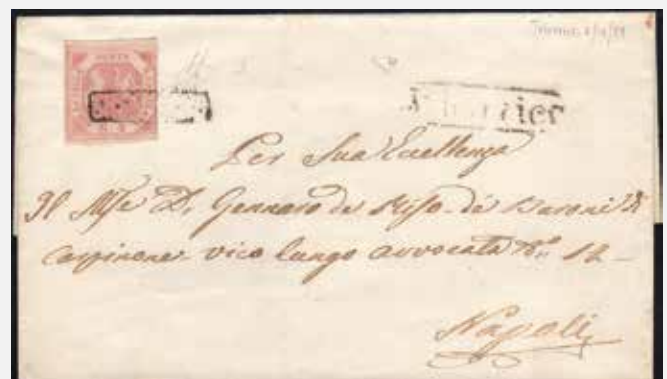 Per Sua Eccellenza
Il Mse D. Gennaro de Riso de Baroni di
Carpinone vico lungo avvocata No. 12
Napoli